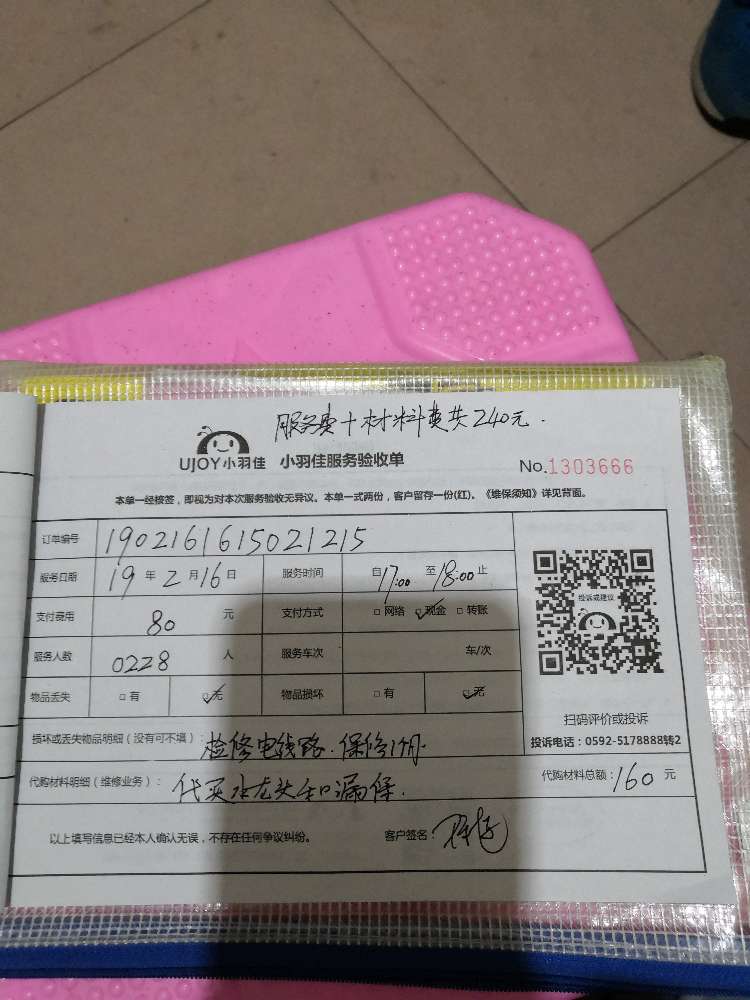 服务费十材料费共240元.
UJOY小羽佳 小羽佳服务验收单 No.1303666
本单一经核签，即视为对本次服务验收无异议。本单一式两份，客户留存一份(红)。《维保须知》详见背面。
订单编号 1902161615021215
服务日期 19年2月16日 服务时间 自17:00至18:00止
支付费用 80元 支付方式 □网络 □现金 □转账
服务人数 0228人 服务车次 车/次
物品丢失 □有 □无 物品损坏 □有 □无
投诉或建议
扫码评价或投诉
投诉电话：0592-5178888转2
损坏或丢失物品明细（没有可不填）：检修电线路.保修1个月.
代购材料明细（维修业务）：代买水龙头和漏保. 代购材料总额：160元
以上填写信息已经本人确认无误，不存在任何争议纠纷。 客户签名：